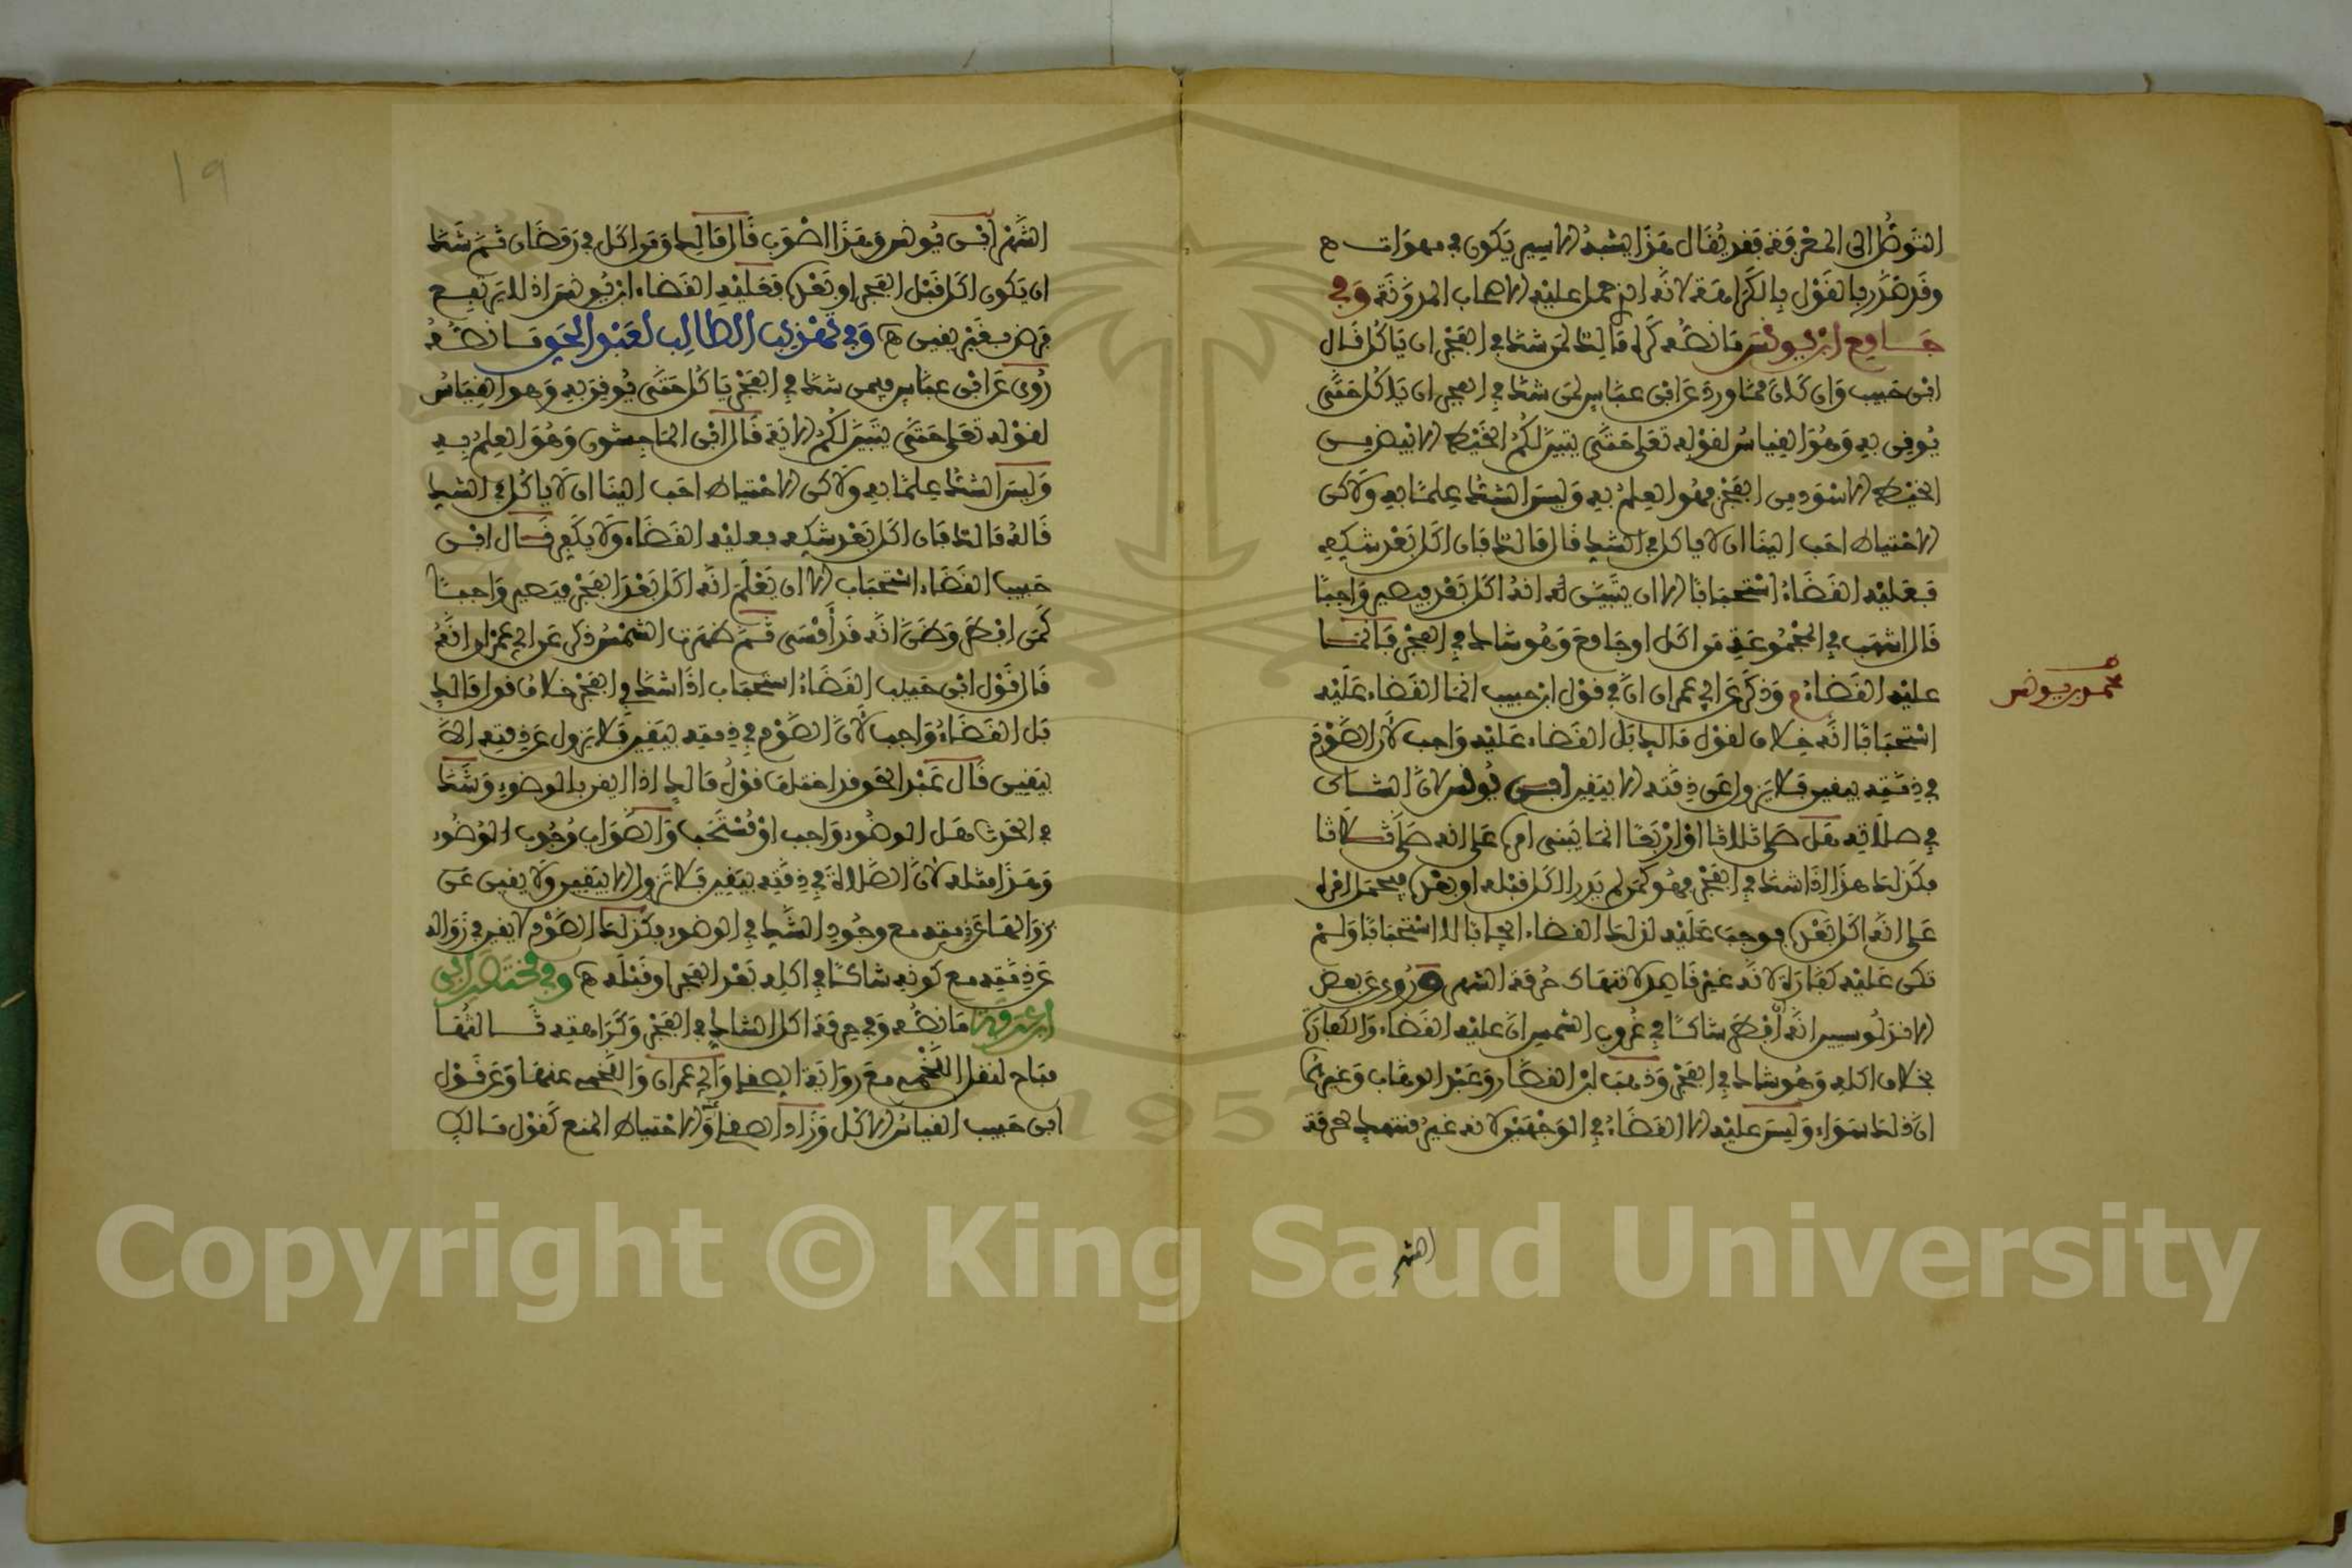 التوصل الى المعرفة فقد يقال هذا يشبه الاسير يكون في مهوات ه
وقد صدر بالقول بالكراهة لانه الذي حمل عليه الاصحاب المدونة وفي
جامع ابن يونس ما نصه كره مالك لمن شك في الفجر ان ياكل قال
ابن حبيب وان كان مما ورد عن ابن عباس لمن شك في الفجر ان ياكل حتى
يوفن به وهو القياس لقوله تعلى حتى يتبين لكم الخيط الابيض من
الخيط الاسود من الفجر فهو العلم به وليس الشك علما به ولاكن
الاحتياط احب الينا ان لا ياكل في الشك قال مالك فان اكل بعد شكه
فعليه القضاء استحبابا الا ان يتبين له انه اكل بعد فيصير واجبا
قال اشهب في المجموعة من اكل او جامع وهو شاك في الفجر فانما
عليه القضاء م وذكر عن ابي عمران ان في قول ابن حبيب انما القضاء عليه
استحبابا انه خلاف لقول مالك بل القضاء عليه واجب لان الصوم
في ذمته بيقين فلا يزول عن ذمته الا بيقين ابن يونس لان الشاك
في صلاته هل صلى ثلاثا او اربعا انما يبني امره على انه صلى ثلاثا
فكذلك هذا اذا شك في الفجر فهو كمن لم يدر اكل قبله او بعده فيحمل امره
على انه اكل بعده فوجب عليه لذلك القضاء ايجابا لا استحبابا ولم
تكن عليه كفارة لانه غير قاصد لانتهاك حرمة الشهر وروي عن بعض
الاندلسيين انه ان افطر شاكا في غروب الشمس ان عليه القضاء والكفارة
بخلاف اكله وهو شاك في الفجر وذهب ابن القصار وعبد الوهاب وغيرهما
ان ذلك سواء وليس عليه الا القضاء في الوجهين لانه غير منتهك حرمة
الشهر
محمد بن يونس
١٩
الشهر ابن يونس وهذا اصوب قال مالك ومن اكل في رمضان ثم شك
ان يكون اكل قبل الفجر او بعده فعليه القضاء ابن يونس اذ لا يرتفع
فرض بغير يقين ه وفي تهذيب الطالب لعبد الحق ما نصه
روى عن ابن عباس فيمن شك في الفجر ياكل حتى يوفن به وهو القياس
لقوله تعلى حتى يتبين لكم الاية قال ابن الماجشون وهو العلم به
وليس الشك علما به ولاكن الاحتياط احب الينا ان لا ياكل في الشك
قاله مالك فان اكل بعد شكه فعليه القضاء ولا يكفر قال ابن
حبيب القضاء استحباب الا ان يعلم انه اكل بعد الفجر فيصير واجبا
كمن افطر وظن انه قد أمسى ثم ظهرت الشمس ذكر عن ابي عمران انه
قال قول ابن حبيب القضاء استحباب اذا شك في الفجر خلاف قول مالك
بل القضاء واجب لان الصوم في ذمته بيقين فلا يزول عن ذمته الا
بيقين قال عبد الحق قد اختلف قول مالك اذا ايقن بالوضوء وشك
في الحدث هل الوضوء واجب او مستحب والصواب وجوب الوضوء
وهذا مثله لان الصلاة في ذمته بيقين فلا تزول الا بيقين ولا يقين عن
زوالها عن ذمته مع وجود الشك في الوضوء فكذلك الصوم لا يقين في زواله
عن ذمته مع كونه شاكا في اكله بعد الفجر او قبله ه وفي مختصر ابن
ابن عرفة ما نصه وفي حرمة اكل الشاك في الفجر وكراهته ثالثها
مباح لنقل اللخمي مع رواية الصقلي وابي عمران واللخمي عنها وعن قول
ابن حبيب القياس الاكل وزاد الصقلي والاحتياط المنع كقول مالك
Copyright © King Saud University
1957